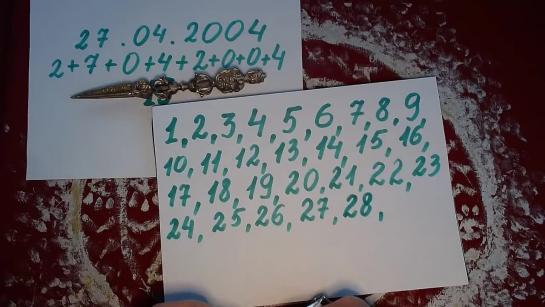 27.04.2004
2+7+0+4+2+0+0+4
1, 2, 3, 4, 5, 6, 7, 8, 9,
10, 11, 12, 13, 14, 15, 16,
17, 18, 19, 20, 21, 22, 23
24, 25, 26, 27, 28,